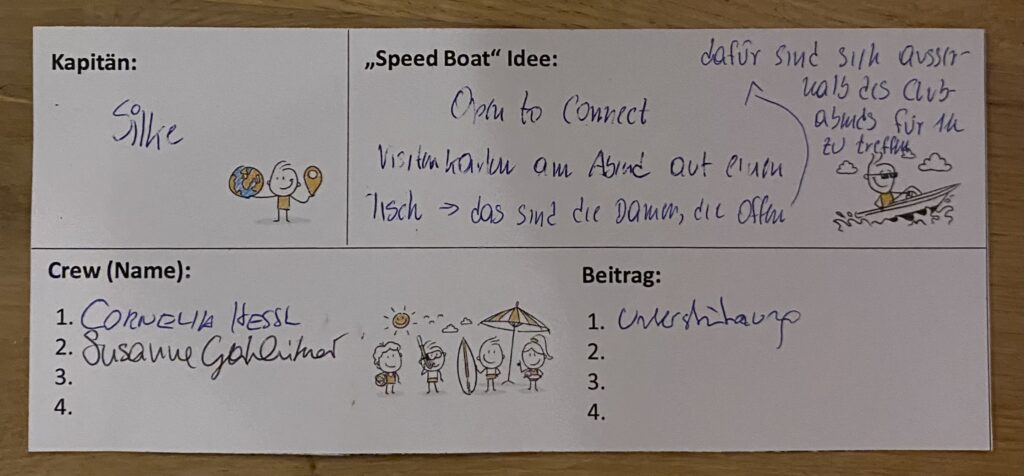 Kapitän:
Silke
„Speed Boat“ Idee:
Open to Connect
Visitenkarten am Abend auf einen
Tisch → das sind die Damen, die offen
dafür sind sich ausser-
halb des Club-
abends für 1h
zu treffen
Crew (Name):
1. CORNELIA HESSL
2. Susanne
3.
4.
Beitrag:
1. Unterstützung
2.
3.
4.